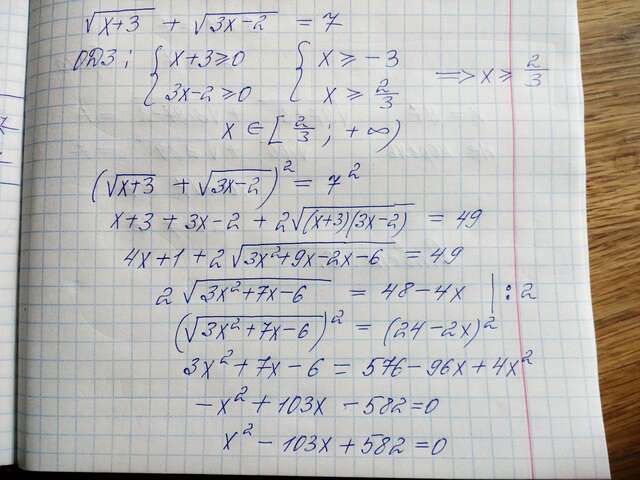 √(x+3) + √(3x-2) = 7
ОДЗ: { x+3≥0 { x≥-3 ⟹ x≥ 2/3
3x-2≥0 x≥ 2/3
x ∈ [2/3; +∞)
(√(x+3) + √(3x-2))² = 7²
x+3+3x-2+2√((x+3)(3x-2)) = 49
4x+1+2√(3x²+9x-2x-6) = 49
2√(3x²+7x-6) = 48-4x | :2
(√(3x²+7x-6))² = (24-2x)²
3x²+7x-6 = 576-96x+4x²
-x²+103x-582=0
x²-103x+582=0